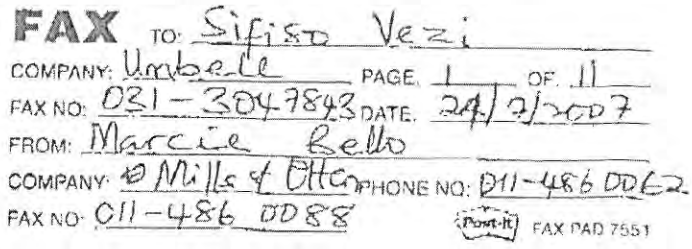 FAX TO: Sifiso Vezi
COMPANY: Umbell PAGE. 1 OF. 11
FAX NO: 031-3047843 DATE. 24/7/2007
FROM: Marcie Bello
COMPANY: Mills & Otten PHONE NO: 011-486 0062
FAX NO: 011-486 0088 Post-it FAX PAD 7551